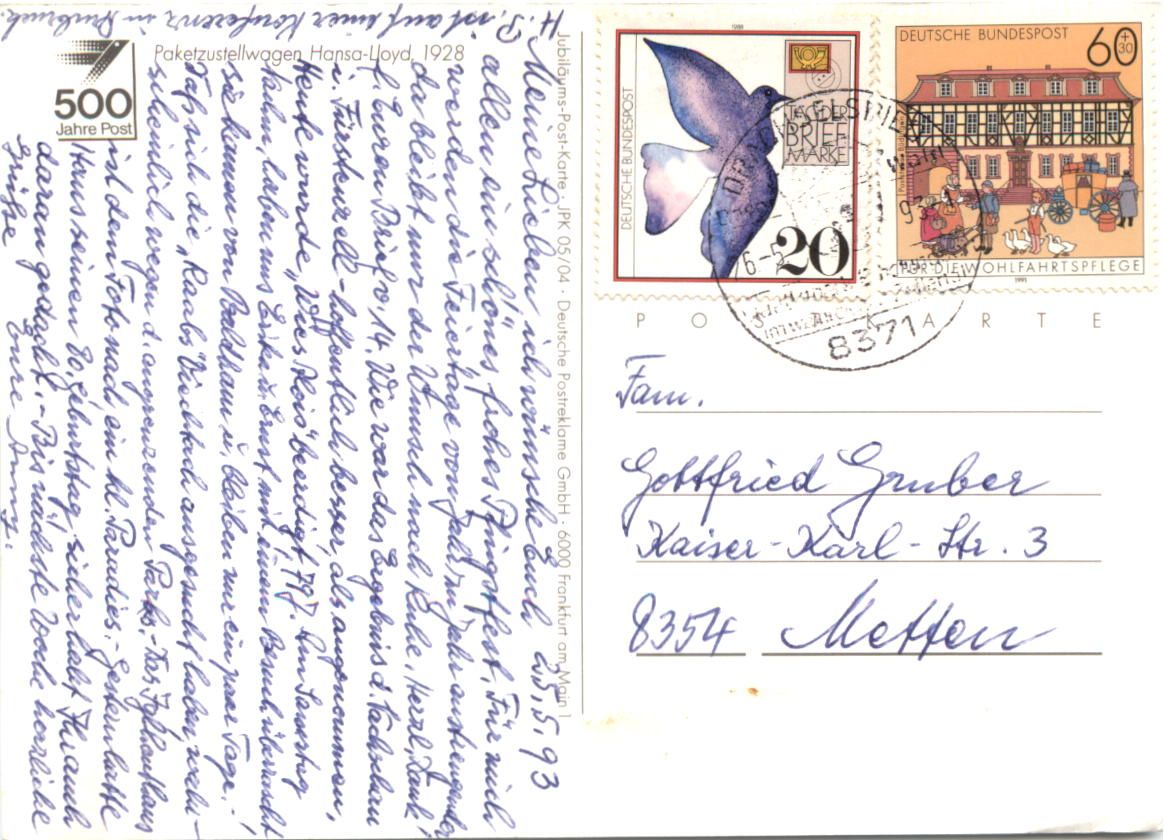 500
Jahre Post
Paketzustellwagen Hansa-Lloyd, 1928
Jubiläums-Post-Karte · JPK 05/04 · Deutsche Postreklame GmbH · 6000 Frankfurt am Main 1
28,5,93
Meine Lieben, ich wünsche Euch
allen ein schönes frohes Pfingstfest, Für mich
werden die Feiertage von Jahr zu Jahr anstrengender
da bleibt nur der Wunsch nach Ruhe. Herzl, Dank
f. Euren Brief v, 14. Wie war das Ergebnis d. Nachschau
i. Fürstenzell - hoffentlich besser, als angenommen,
Heute wurde „Wies Alois" beerdigt, 79J. Am Samstag
haben uns Erika u. Ernst mit einem Besuch überrascht
sie kamen von u, bleiben nur ein paar Tage. -
Daß sich die „Raabs" Viechtach ausgesucht haben wahr-
scheinlich wegen d. angrenzenden Parks. - Das
ist dem Foto nach ein kl. Paradies. Gestern hatte
Hans seinen 80. Geburtstag, sicher habt Ihr auch
daran gedacht. - Bis nächste Woche herzliche
Grüße Eure Anny.
H. P. ist auf einer Konferenz in
DEUTSCHE BUNDESPOST
1988
TAG DER
BRIEF-
MARKE
20
DEUTSCHE BUNDESPOST
60
+
30
FÜR DIE WOHLFAHRTSPFLEGE
1991
8371
POSTKARTE
Fam.
Gottfried Gruber
Kaiser-Karl-Str. 3
8354 Metten